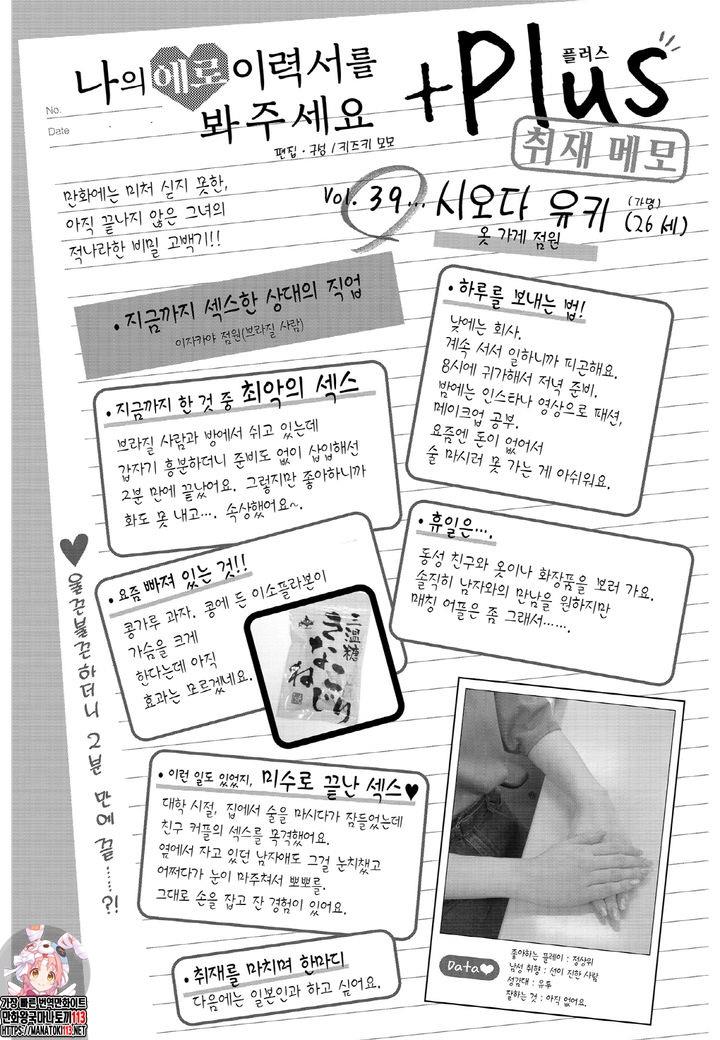 나의 에로 이력서를
봐주세요
+Plus
플러스
취재 메모
No.
Date
편집·구성 / 키즈키 모모
만화에는 미처 싣지 못한,
아직 끝나지 않은 그녀의
적나라한 비밀 고백기!!
Vol. 39... 시오다 유키 (가명) (26세)
옷 가게 점원
• 지금까지 섹스한 상대의 직업
이자카야 점원(브라질 사람)
• 지금까지 한 것 중 최악의 섹스
브라질 사람과 방에서 쉬고 있는데
갑자기 흥분하더니 준비도 없이 삽입해선
2분 만에 끝났어요. 그렇지만 좋아하니까
화도 못 내고···. 속상했어요~.
• 하루를 보내는 법!
낮에는 회사.
계속 서서 일하니까 피곤해요.
8시에 귀가해서 저녁 준비.
밤에는 인스타나 영상으로 패션,
메이크업 공부.
요즘엔 돈이 없어서
술 마시러 못 가는 게 아쉬워요.
• 휴일은···.
동성 친구와 옷이나 화장품을 보러 가요.
솔직히 남자와의 만남을 원하지만
매칭 어플은 좀 그래서······.
• 요즘 빠져 있는 것!!
콩가루 과자. 콩에 든 이소플라본이
가슴을 크게
한다는데 아직
효과는 모르겠네요.
三温糖
きなこねじり
♥울끈불끈하더니 2분 만에 끝······?!
• 이런 일도 있었지, 미수로 끝난 섹스♥
대학 시절, 집에서 술을 마시다가 잠들었는데
친구 커플의 섹스를 목격했어요.
옆에서 자고 있던 남자애도 그걸 눈치챘고
어쩌다가 눈이 마주쳐서 뽀뽀를.
그대로 손을 잡고 잔 경험이 있어요.
• 취재를 마치며 한마디
다음에는 일본인과 하고 싶어요.
Data♥
좋아하는 플레이 : 정상위
남성 취향 : 선이 진한 사람
성감대 : 유두
잘하는 것 : 아직 없어요.
가장 빠른 번역만화사이트
만화왕국마나토끼113
HTTPS://MANATOKI113.NET